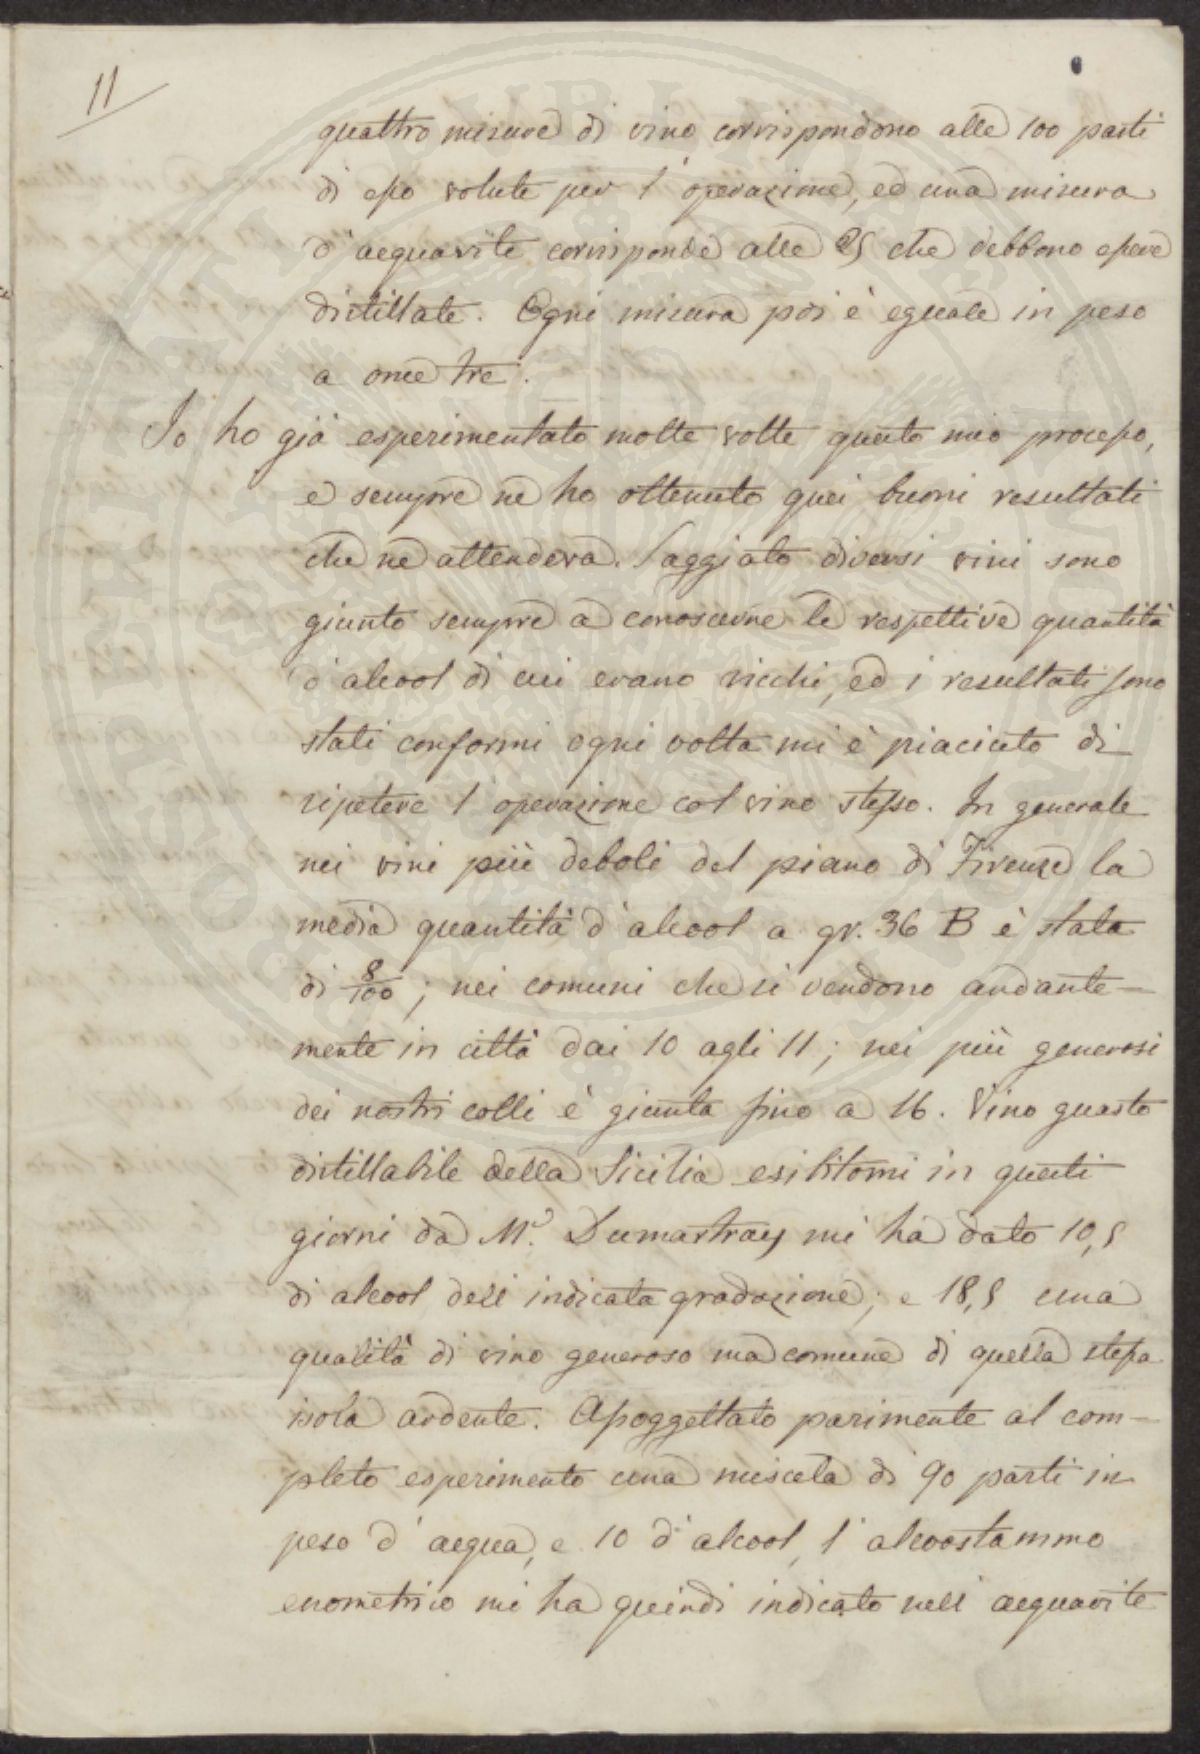 11
quattro misure di vino corrispondono alle 100 parti
di esso volute per l'operazione, ed una misura
d'acquavite corrisponde alle 25 che debbono essere
distillate. Ogni misura poi è eguale in peso
a once tre.
Io ho già esperimentato molte volte questo mio processo,
e sempre ne ho ottenuto quei buoni resultati
che ne attendeva. Saggiato diversi vini sono
giunto sempre a conoscerne le respettive quantità
d'alcool di cui erano ricchi, ed i resultati sono
stati conformi ogni volta mi è piaciuto di
ripetere l'operazione col vino stesso. In generale
nei vini più deboli del piano di Firenze la
media quantità d'alcool a gr. 36 B è stata
di 8/100; nei comuni che si vendono andante-
mente in città dai 10 agli 11; nei più generosi
dei nostri colli è giunta fino a 16. Vino guasto
distillabile della Sicilia esibitomi in questi
giorni da Mr. Dumartray mi ha dato 10,5
di alcool dell'indicata gradazione; e 18,5 una
qualità di vino generoso ma comune di quella stessa
isola ardente. Assoggettato parimente al com-
pleto esperimento una miscela di 90 parti in
peso d'acqua, e 10 d'alcool, l'alcoostammo
enometrico mi ha quindi indicato nell'acquavite